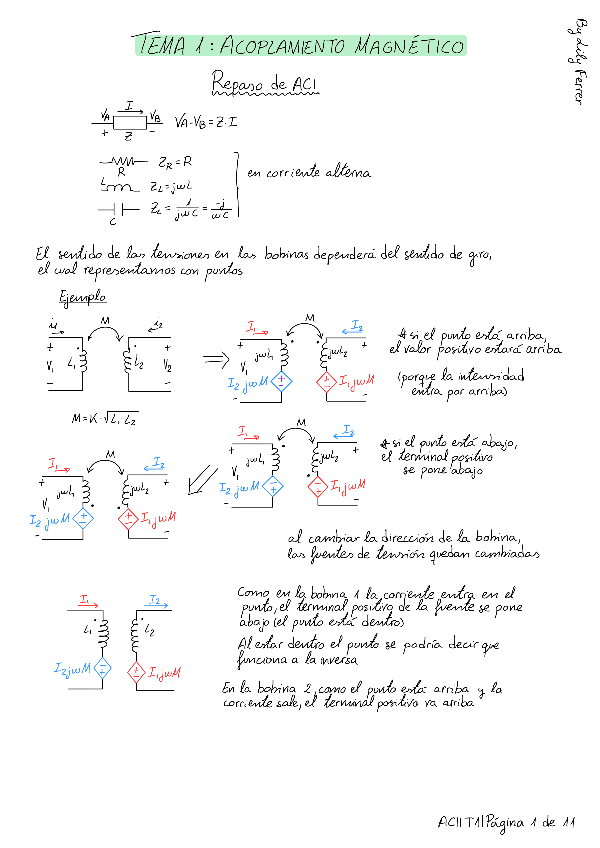 TEMA 1: ACOPLAMIENTO MAGNÉTICO
By Lily Ferrer
Repaso de ACI
I
VA VB
+ Z −
VA-VB = Z·I
R ZR = R
L ZL = jωL
C ZC = 1/jωC = -j/ωC
en corriente alterna
El sentido de las tensiones en las bobinas dependerá del sentido de giro,
el cual representamos con puntos
Ejemplo
i1 M i2
+ V1 − L1 L2 + V2 −
I1 M I2
+ V1 − jωL1 jωL2 + −
I2 jωM I1 jωM
* si el punto está arriba,
el valor positivo estará arriba
(porque la intensidad
entra por arriba)
M = K·√L1·L2
I1 M I2
+ V1 − jωL1 jωL2 + −
I2 jωM I1 jωM
* si el punto está abajo,
el terminal positivo
se pone abajo
I1 M I2
+ V1 − jωL1 jωL2 + −
I2 jωM I1 jωM
al cambiar la dirección de la bobina,
las fuentes de tensión quedan cambiadas
I1 I2
L1 L2
I2 jωM I1 jωM
Como en la bobina 1 la corriente entra en el
punto, el terminal positivo de la fuente se pone
abajo (el punto está dentro)
Al estar dentro el punto se podría decir que
funciona a la inversa
En la bobina 2, como el punto está arriba y la
corriente sale, el terminal positivo va arriba
ACII T1|Página 1 de 11